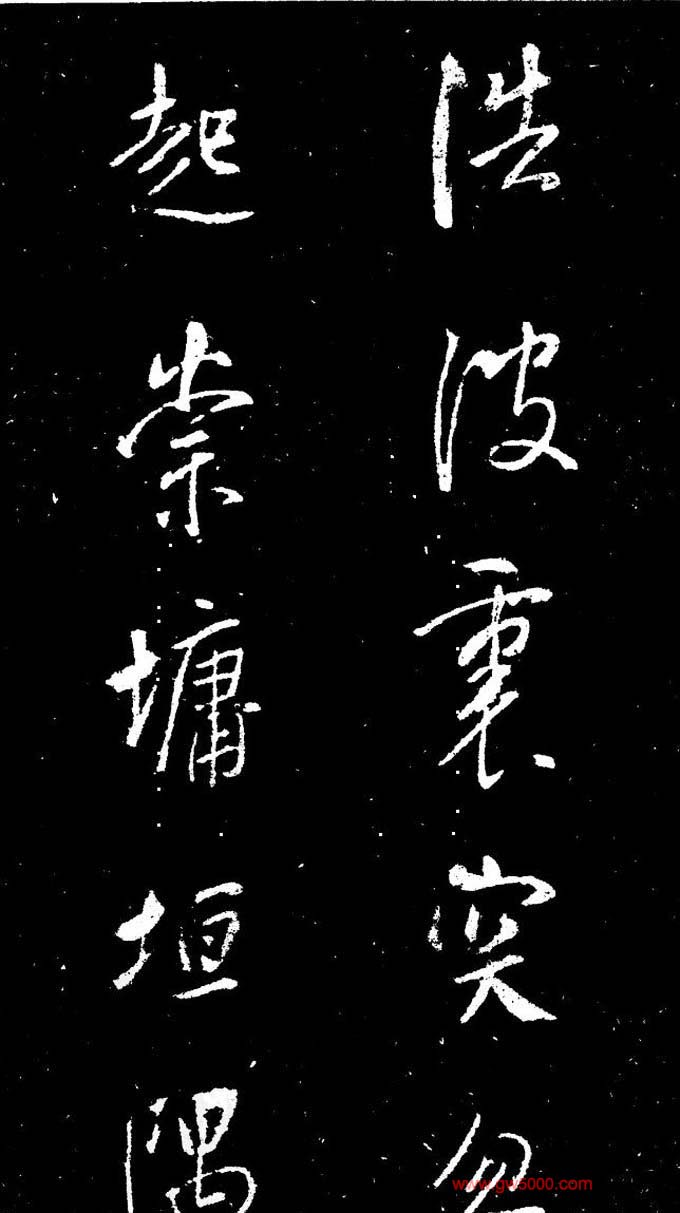 浩波裏突忽
起崇墉垣隅
www.gw5000.com